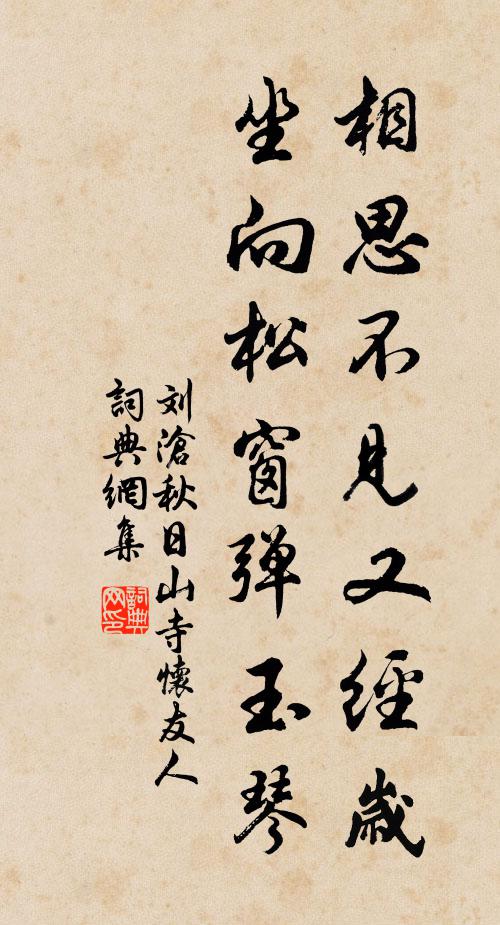 相思不見又經歲
坐向松窗弹玉琴
刘滄秋日山寺懷友人
詞典網集
詞典
网印